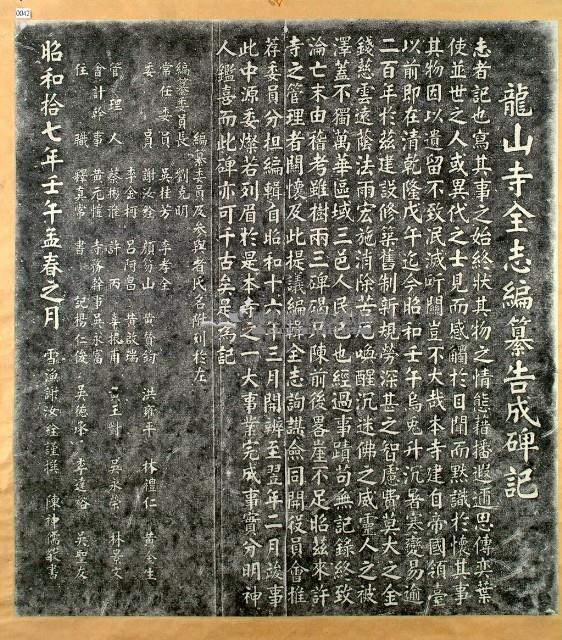 龍山寺全志編纂告成碑記
志者記也寫其事之始終狀其物之情態藉播遐邇思傳奕葉
使並世之人或異代之士見而感觸於目聞而默識於懷其事
其物因以遺留不致泯滅所關豈不大哉本寺建自帝國領臺
以前即在清乾隆戊午迄今昭和壬午烏兔升沉暑寒變易逾
二百年於茲建設修築舊制新規勞深甚之智慮費莫大之金
錢慈雲遠蔭法雨宏施消除苦厄喚醒沉迷佛之威靈人之被
澤蓋不獨萬華區域三邑人民已也經過事蹟苟無記錄終致
淪亡末由稽考雖樹兩三碑碣只陳前後畧崖不足昭茲來許
寺之管理者關懷及此提議編輯全志詢謀僉同開役員會推
荐委員分担編輯自昭和十六年三月開辦至翌年二月竣事
此中源委燦若列眉於是本寺之一大事業完成事實分明神
人鑑喜而此碑亦可千古矣是為記
編纂委員及參與者氏名附列於左
編纂委員長 劉克明
常任委員 吳桂芳 李孝全 黃贊鈞 洪雍平 林禮仁 黃金生
委員 謝汝銓 顏笏山 黃啟瑞
李金梅 呂阿昌 王 吳永榮 林景文
管理人 蔡彬淮 許丙 辜振甫
會計幹事 黃元愷 寺務幹事 吳永富 吳德承 李達裕 吳聖友
住職 釋真常 書記 楊仁俊
昭和拾七年壬午孟春之月 雪漁謝汝銓謹撰 陳 儒 書
0042